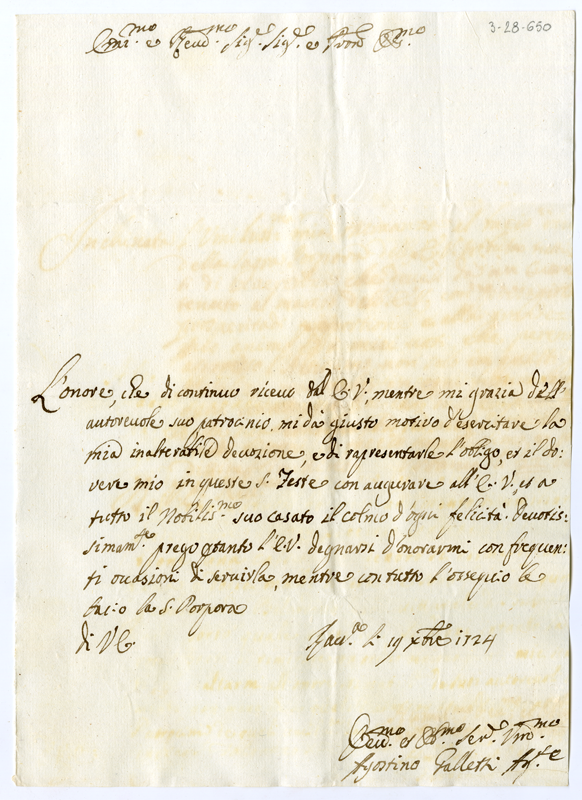 3-28-650
Emi.mo e Reud.mo Sig.e Sig.e e Pron Col.mo
L'onore, che di continuo riceuo dall' E. V., mentre mi grazia dell'
autoreuole suo patrocinio, mi dà giusto motiuo d'esercitare la
mia inalterabile deuozione, e di rapresentarle l'obligo, et il do-
uere mio in queste S. Feste con augurare all' E. V., et a
tutto il Nobilis.mo suo casato il colmo d'ogni felicità. Deuotis:
simam.te prego p tanto l'E. V. degnarsi d'onorarmi con frequen-
ti occasioni di seruirla, mentre con tutto l'ossequio le
bacio la S. Porpora
di V E.
li 19 xbre 1724
Vm.o et Ob.mo Ser.e
Agostino Galletti